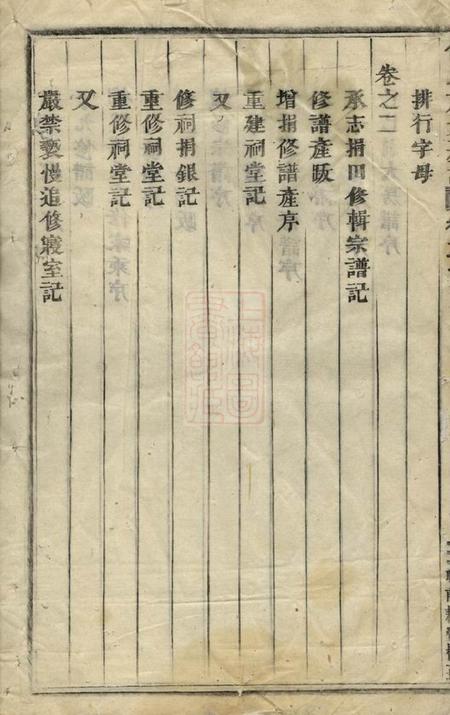 排行字母
卷之二
承志捐田修輯宗譜記
修譜產跋
增捐修譜產序
重建祠堂記
又
修祠捐銀記
重修祠堂記
重修祠堂記
又
嚴禁褻慢追修寢室記